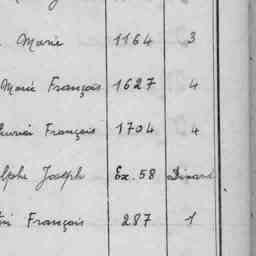 Marie 1164 3
Marie François 1627 4
François 1704 4
Joseph Ex. 58 Dinard
François 287 1